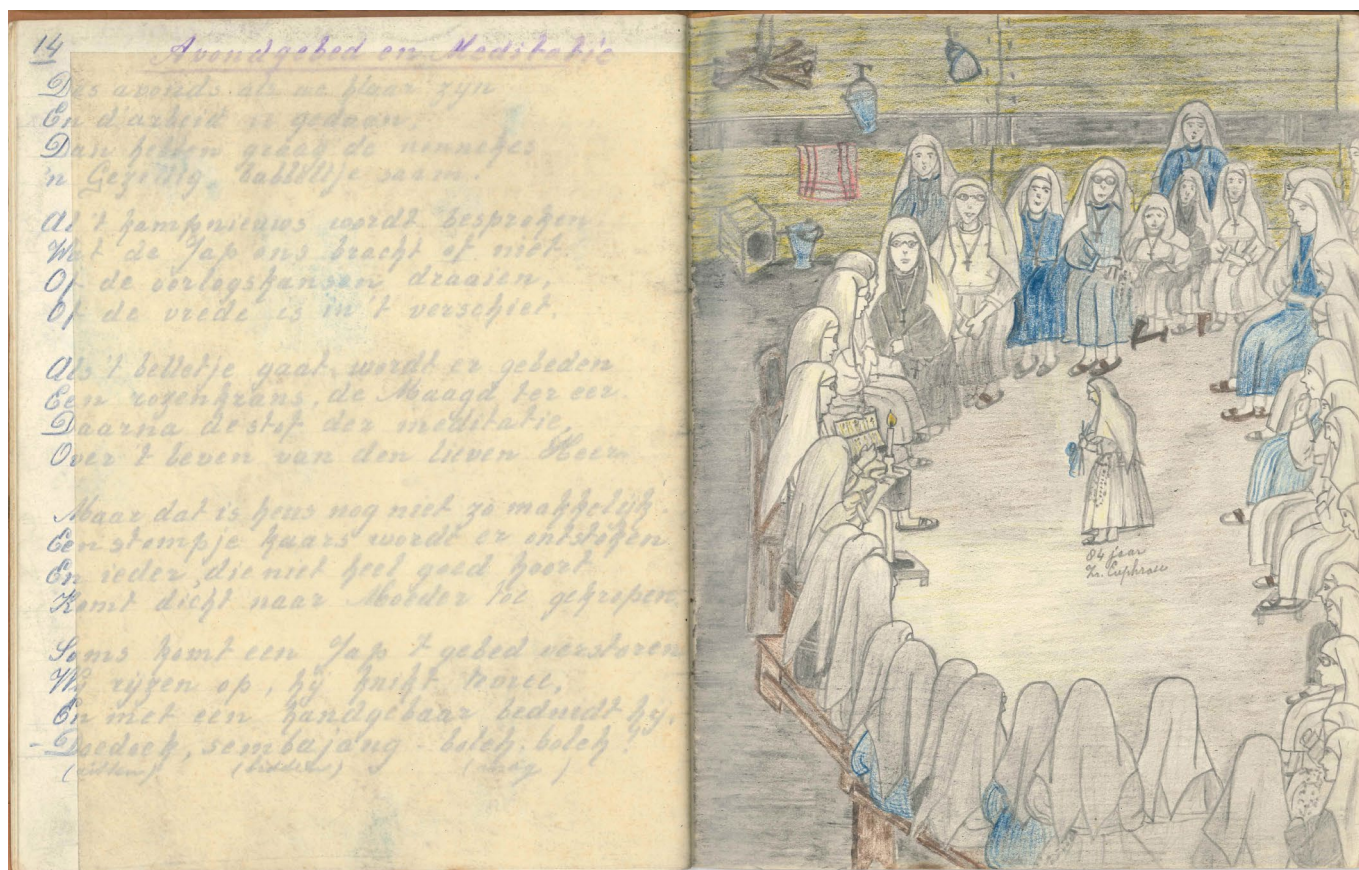 14
Avondgebed en Meditatie
Des avonds als we klaar zyn
En d'arbeid is gedaan,
Dan komen graag de nonnekes
'n Gezellig babbeltje saam.
Als 't kampnieuws wordt besproken
Wat de Jap ons bracht of niet.
Of de oorlogskansen draaien,
Of de vrede is in 't verschiet.
Als 't belletje gaat wordt er gebeden
Een rozenkrans, de Maagd ter eer.
Daarna de stof der meditatie,
Over 't leven van den lieven Heer.
Maar dat is heus nog niet zo makkelyk
Een stompje kaars wordt er ontstoken
En ieder, die niet heel goed hoort
Komt dicht naar Moeder toe gekropen.
Soms komt een Jap 't gebed verstoren
Wy ryzen op, hy knikt
En met een handgebaar beduidt hy,
- Doedoek, sembajang - boleh, boleh!
(zitten) (bidden) (mag)
84 jaar
Zr. Euphrasie